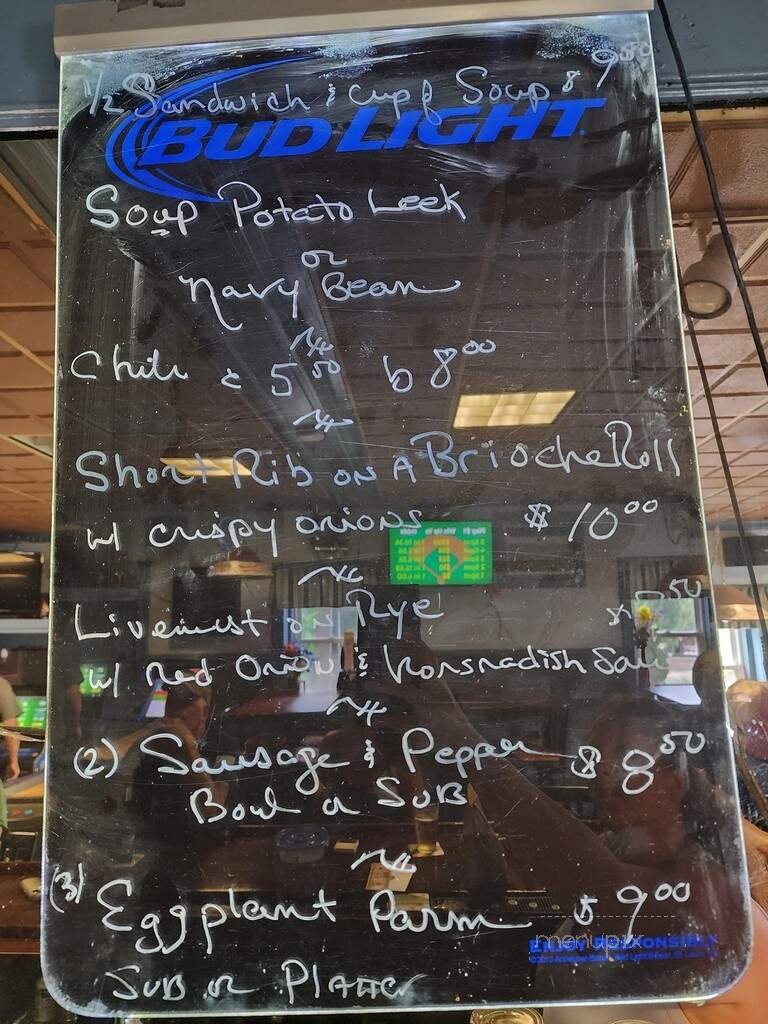 1/2 Sandwich & cup of Soup $ 9 50
BUD LIGHT
Soup Potato Leek
or
Navy Bean
Chili c 5 50 b 8 00
Short Rib on A Brioche Roll
w/ crispy onions $ 10 00
on Rye 50
w/ Red Onion &
(2) Sausage & Pepper $ 8 50
Bowl or SUB
(3) Eggplant Parm $ 9 00
menupix
ENJOY RESPONSIBLY
SUB or Platter